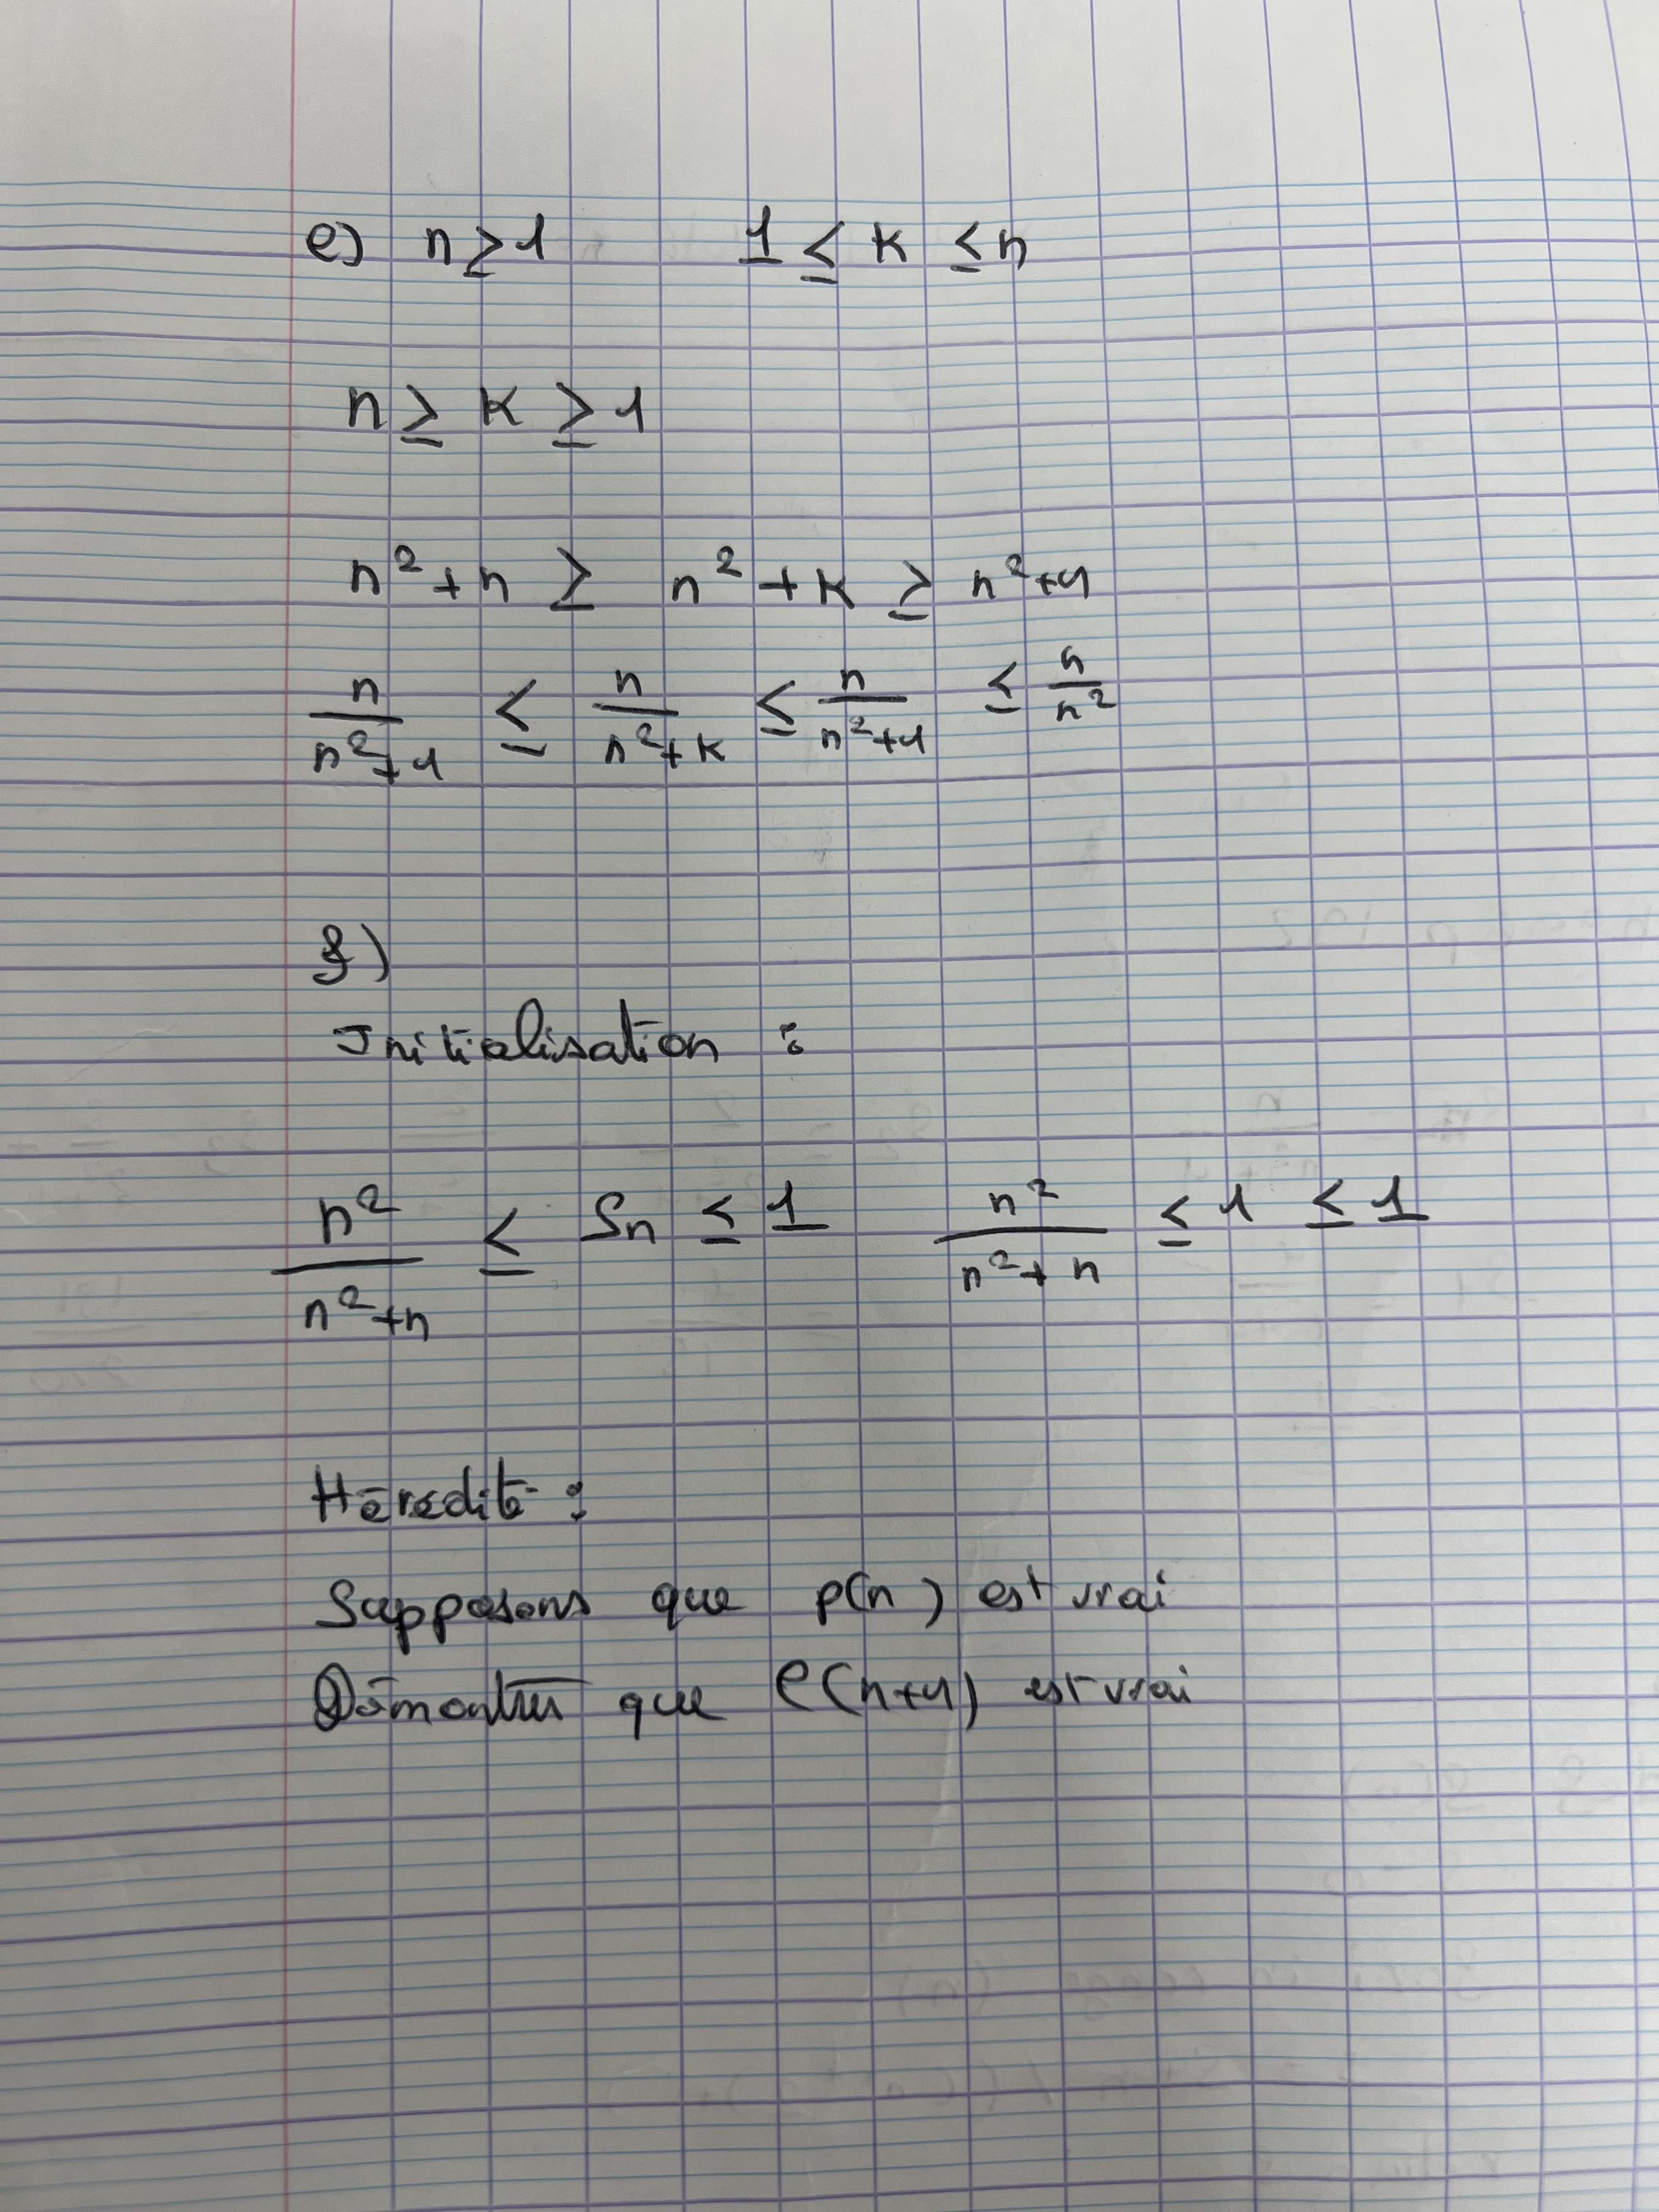 e) n ≥ 1 1 ≤ k ≤ n
n ≥ k ≥ 1
n² + n ≥ n² + k ≥ n² + 1
n/(n² + 1) ≤ n/(n² + k) ≤ n/(n² + 1) ≤ n/n²
f)
Initialisation :
n²/(n² + n) ≤ Sn ≤ 1 n²/(n² + n) ≤ 1 ≤ 1
Hérédité :
Supposons que p(n) est vrai
Démontrer que P(n+1) est vrai